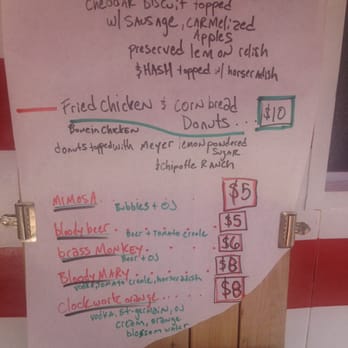 CHEDDAR Biscuit topped
w/ SAUSAGE, CARMelized
Apples
preserved lemon relish
& HASH topped w/ horseradish
Fried chicken & Cornbread
Donuts... $10
Bone in chicken
donuts topped with Meyer lemon powdered
SUGAR
& Chipotle Ranch
MIMOSA $5
Bubbles + OJ
bloody beer..... $5
Beer + Tomato creole
brass MONKEY.... $6
Beer + OJ
Bloody MARY..... $8
vodka, Tomato creole, horseradish
Clockwork orange.... $8
vodka, St. germain, OJ
cream, orange
blossom water